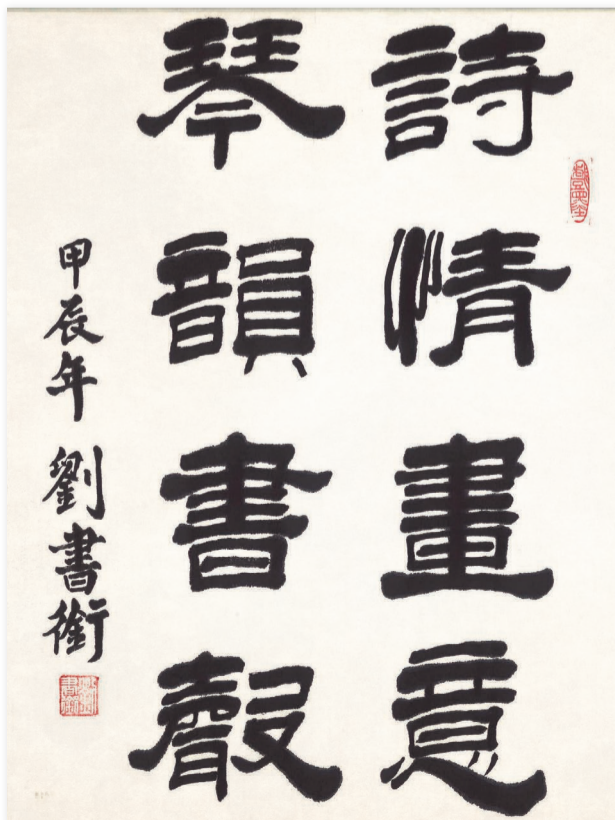 詩情畫意
琴韻書聲
甲辰年 劉書銜